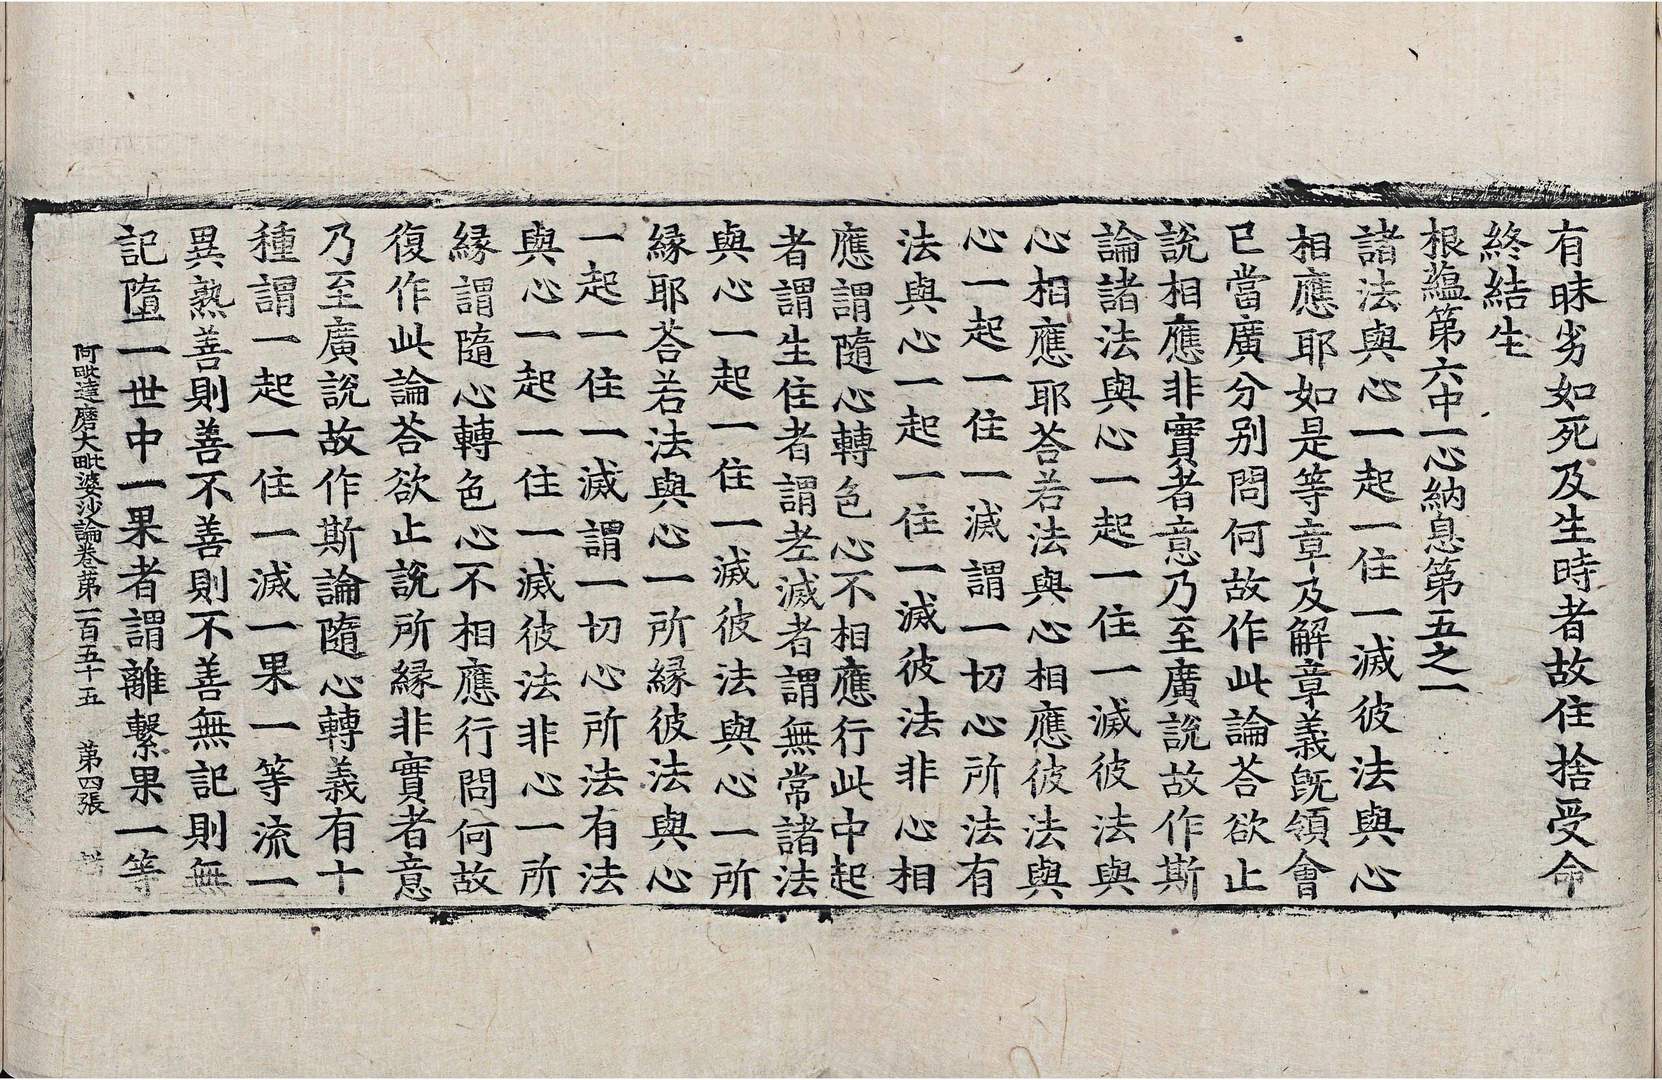 有昧劣如死及生時者故住捨受命
終結生
根蘊第六中一心納息第五之一
諸法與心一起一住一滅彼法與心
相應耶如是等章及解章義旣領會
已當廣分別問何故作此論荅欲止
說相應非實者意乃至廣說故作斯
論諸法與心一起一住一滅彼法與
心相應耶荅若法與心相應彼法與
心一起一住一滅謂一切心所法有
法與心一起一住一滅彼法非心相
應謂隨心轉色心不相應行此中起
者謂生住者謂老滅者謂無常諸法
與心一起一住一滅彼法與心一所
緣耶荅若法與心一所緣彼法與心
一起一住一滅謂一切心所法有法
與心一起一住一滅彼法非心一所
緣謂隨心轉色心不相應行問何故
復作此論荅欲止說所緣非實者意
乃至廣說故作斯論隨心轉義有十
種謂一起一住一滅一果一等流一
異熟善則善不善則不善無記則無
記墮一世中一果者謂離繫果一等
阿毗達磨大毗婆沙論卷第一百五十五 第四張